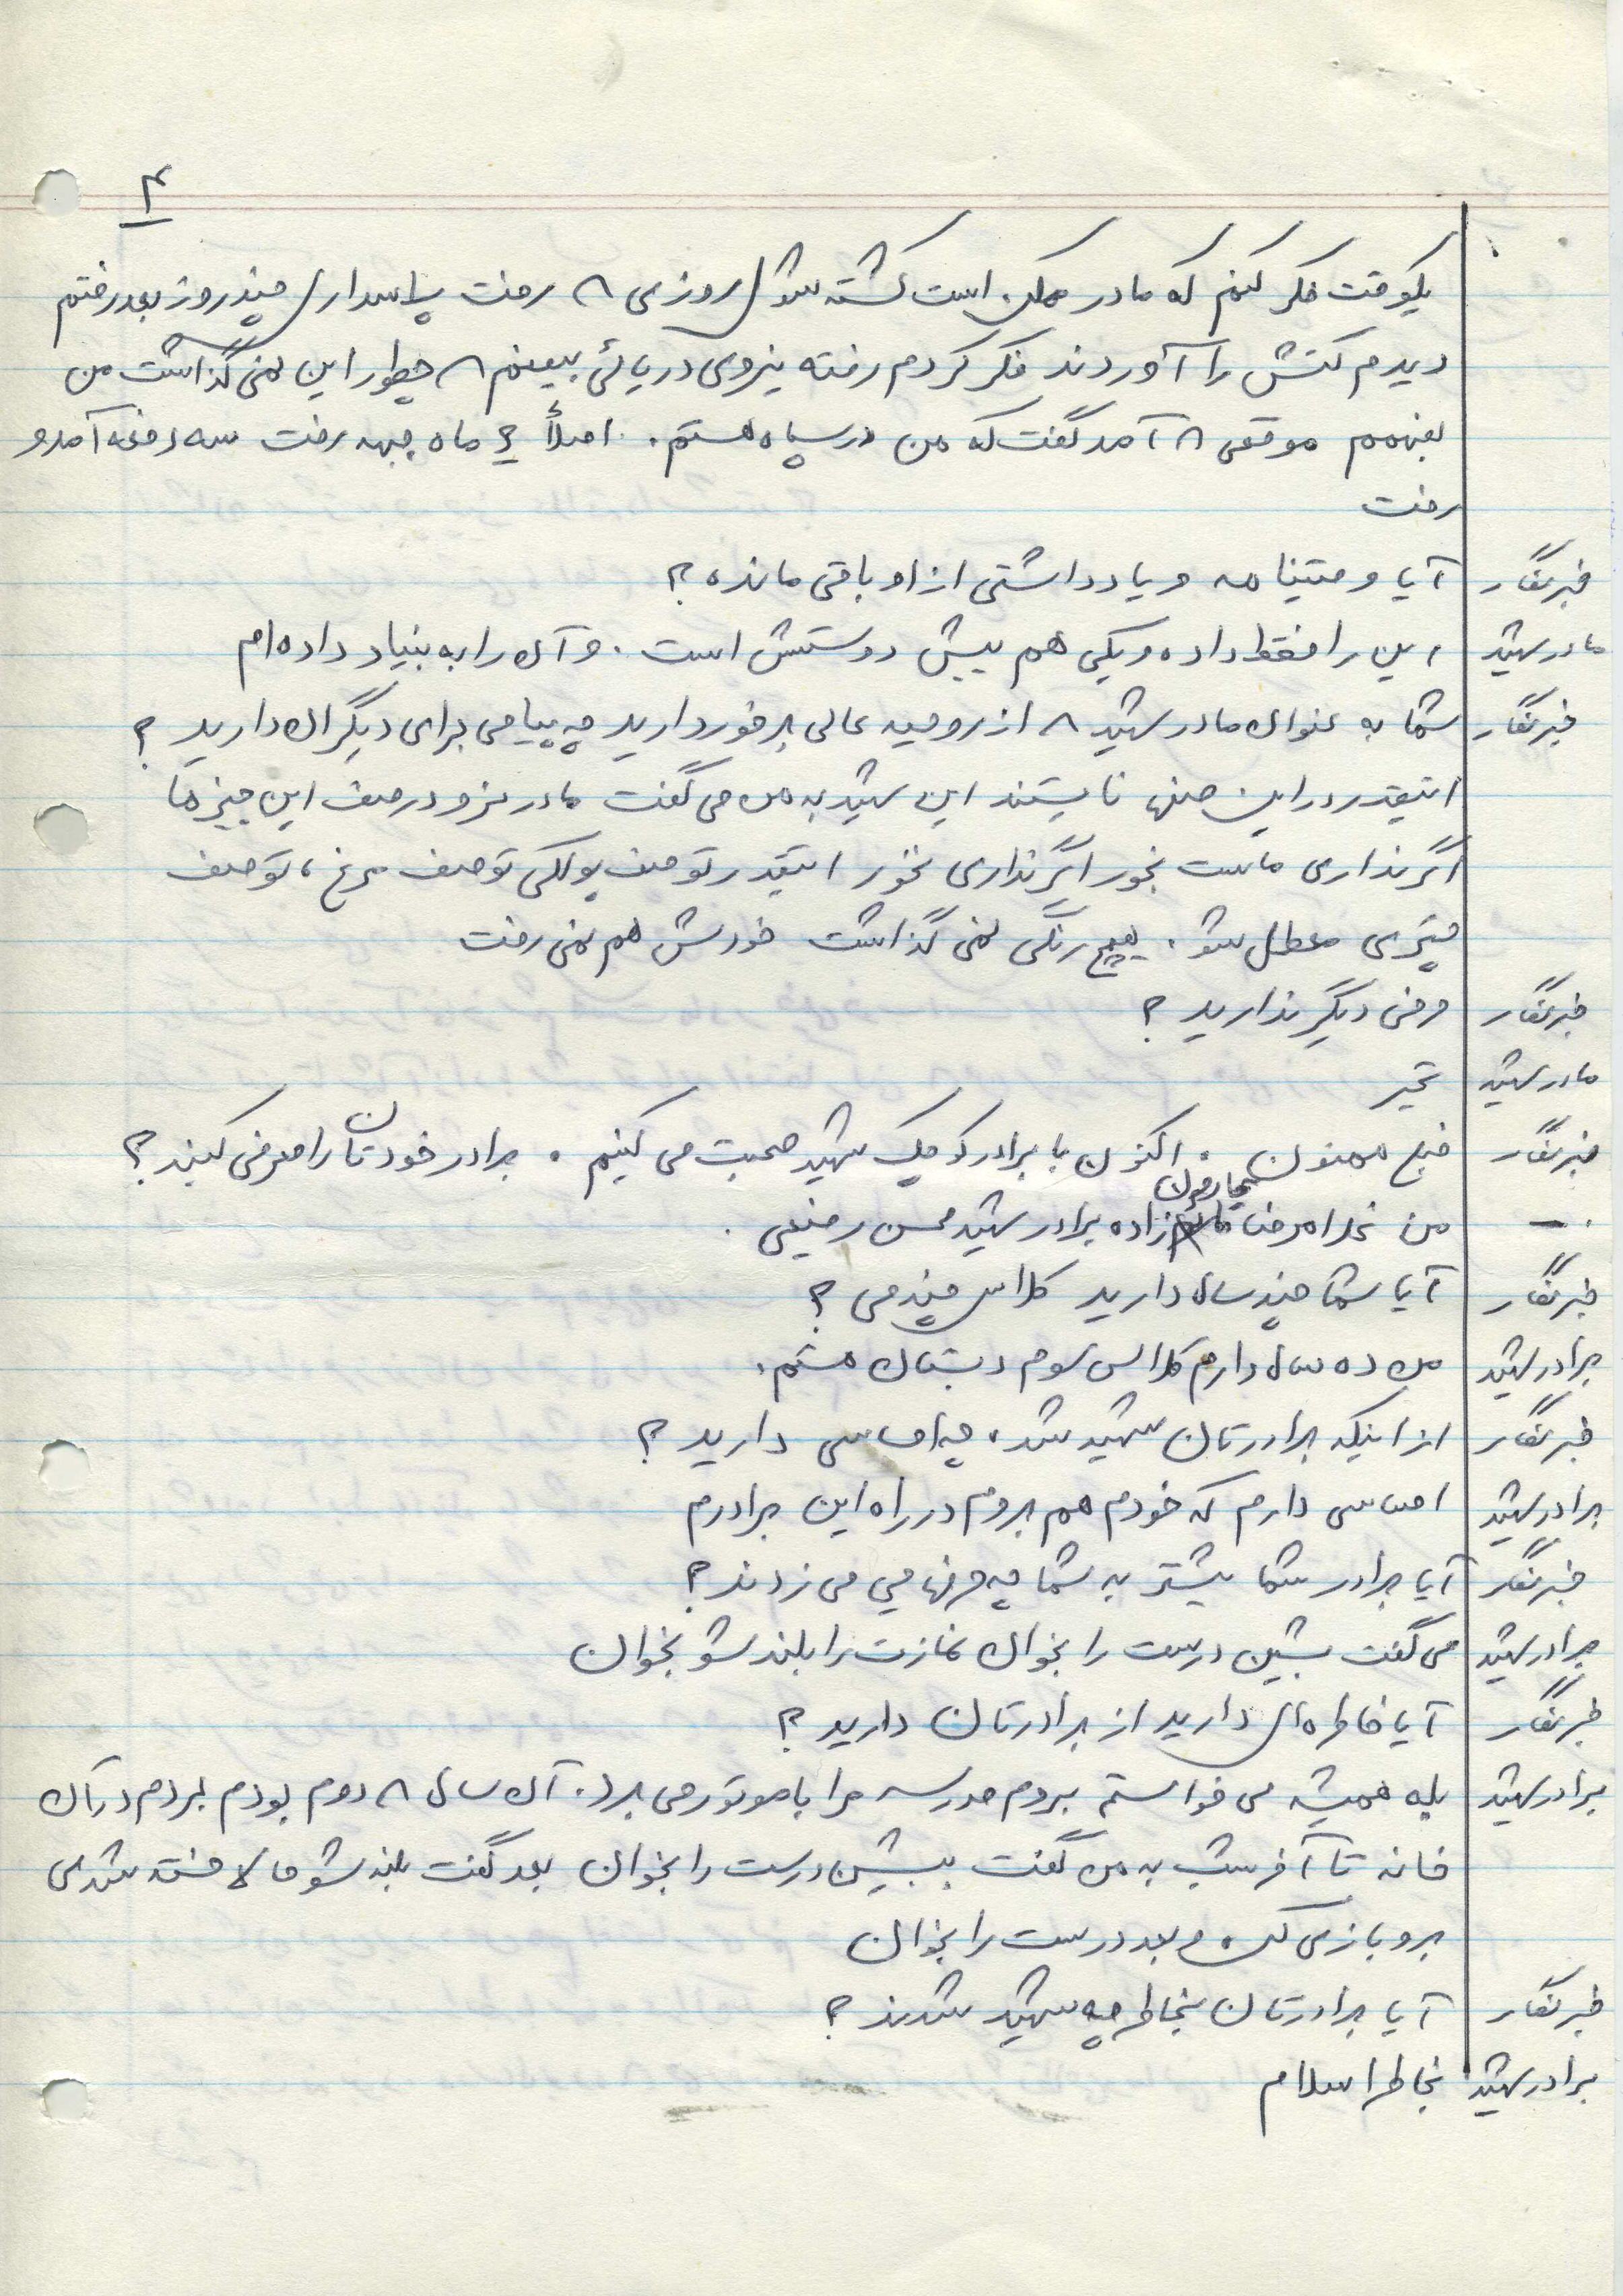 ۴
یکوقت فکر کنم که مادر ممکن است کشته شوی روزی ۸ رفت پاسداری چند روز بعد رفتم
دیدم کتش را آوردند فکر کردم رفته نیروی دریائی ببینم ۸ چطور این نمی گذاشت من
بفهمم موقعی ۸ آمد گفت که من در سپاه هستم. اصلاً ۶ ماه جبهه رفت سه دفعه آمد و
رفت
خبرنگار آیا وصیتنامه و یا دداشتی از او باقی مانده ؟
مادر شهید این را فقط داده و یکی هم پیش دوستش است . و آن را به بنیاد داده ام
خبرنگار شما به عنوان مادر شهید ۸ از روحیه عالی برخوردارید چه پیامی برای دیگران دارید ؟
اینقدر در این صفها نایستند این شهید به من می گفت مادر نرو در صف این چیزها
اگر نداری ماست بخور اگر نداری نخور اینقدر تو صف پولکی تو صف مرغ ، تو صف
چیزی معطل نشو . هیچ رنگی نمی گذاشت خودش هم نمی رفت
خبرنگار حرفی دیگر ندارید ؟
مادر شهید نخیر
خبرنگار خیلی ممنون . اکنون با برادر کوچک شهید صحبت می کنیم . برادر خودتان را معرفی کنید ؟
- من غلامرضا زاده برادر شهید محسن رفیعی .
خبرنگار آیا شما چند سال دارید کلاس چندمی ؟
برادر شهید من ده سال دارم کلاس سوم دبستان هستم.
خبرنگار از اینکه برادرتان شهید شد ، چه احساسی دارید ؟
برادر شهید احساسی دارم که خودم هم بروم در راه این برادرم
خبرنگار آیا برادر شما بیشتر به شما چه حرفهایی می زدند ؟
برادر شهید می گفت بشین درست را بخوان نمازت را بلند شو بخوان
خبرنگار آیا خاطره ای دارید از برادرتان دارید ؟
برادر شهید بله همیشه می خواستم بروم مدرسه مرا با موتور می برد . آن سال ۸ دوم بودم بردم در آن
خانه تا آخر شب به من گفت بشین درست را بخوان بعد گفت بلند شو حالا خسته شدی
برو بازی کن و بعد درست را بخوان
خبرنگار آیا برادرتان بخاطر چه شهید شدند ؟
برادر شهید بخاطر اسلام